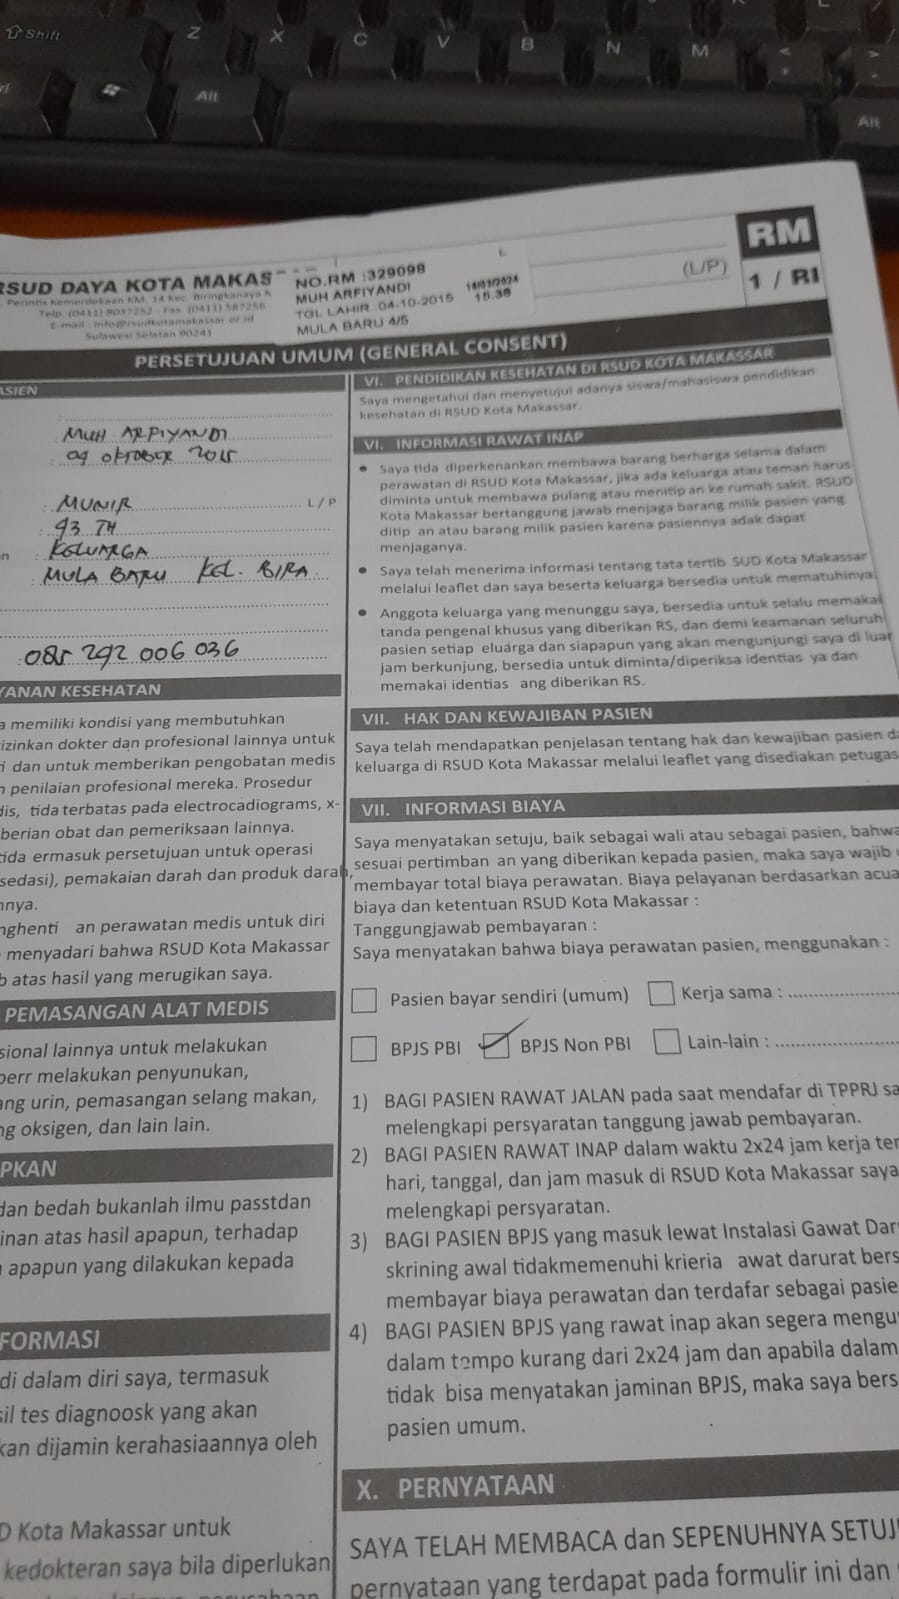 Shift Z X C V B N M < >
Alt Alt
RSUD DAYA KOTA MAKAS
Perintis Kemerdekaan KM. 14 Kec. Biringkanaya
Telp. (0411) 8037252 - Fax. (0411) 587256
E-mail : info@rsudkotamakassar.or.id
Sulawesi Selatan 90241
NO.RM :329098
MUH ARFIYANDI
TGL LAHIR :04-10-2015
MULA BARU 4/5
L
14/03/2024
15.38
(L/P)
RM
1 / RI
PERSETUJUAN UMUM (GENERAL CONSENT)
ASIEN
MUH ARPIYANDI
OKTOBER 2015
MUNIR L / P
43 TH
n : KELUARGA
MULA BARU KEL. BIRA
085 292 006 036
YANAN KESEHATAN
a memiliki kondisi yang membutuhkan
izinkan dokter dan profesional lainnya untuk
i dan untuk memberikan pengobatan medis
n penilaian profesional mereka. Prosedur
dis, tida terbatas pada electrocadiograms, x-
berian obat dan pemeriksaan lainnya.
tida ermasuk persetujuan untuk operasi
sedasi), pemakaian darah dan produk darah,
nnya.
nghenti an perawatan medis untuk diri
menyadari bahwa RSUD Kota Makassar
b atas hasil yang merugikan saya.
PEMASANGAN ALAT MEDIS
sional lainnya untuk melakukan
perr melakukan penyunukan,
ang urin, pemasangan selang makan,
ng oksigen, dan lain lain.
PKAN
dan bedah bukanlah ilmu passtdan
inan atas hasil apapun, terhadap
apapun yang dilakukan kepada
FORMASI
di dalam diri saya, termasuk
sil tes diagnoosk yang akan
kan dijamin kerahasiaannya oleh
D Kota Makassar untuk
kedokteran saya bila diperlukan
VI. PENDIDIKAN KESEHATAN DI RSUD KOTA MAKASSAR
Saya mengetahui dan menyetujui adanya siswa/mahasiswa pendidikan
kesehatan di RSUD Kota Makassar.
VI. INFORMASI RAWAT INAP
● Saya tida diperkenankan membawa barang berharga selama dalam
perawatan di RSUD Kota Makassar, jika ada keluarga atau teman harus
diminta untuk membawa pulang atau menitip an ke rumah sakit. RSUD
Kota Makassar bertanggung jawab menjaga barang milik pasien yang
ditip an atau barang milik pasien karena pasiennya adak dapat
menjaganya.
● Saya telah menerima informasi tentang tata tertib SUD Kota Makassar
melalui leaflet dan saya beserta keluarga bersedia untuk mematuhinya.
● Anggota keluarga yang menunggu saya, bersedia untuk selalu memakai
tanda pengenal khusus yang diberikan RS, dan demi keamanan seluruh
pasien setiap eluarga dan siapapun yang akan mengunjungi saya di luar
jam berkunjung, bersedia untuk diminta/diperiksa identias ya dan
memakai identias ang diberikan RS.
VII. HAK DAN KEWAJIBAN PASIEN
Saya telah mendapatkan penjelasan tentang hak dan kewajiban pasien da
keluarga di RSUD Kota Makassar melalui leaflet yang disediakan petugas
VII. INFORMASI BIAYA
Saya menyatakan setuju, baik sebagai wali atau sebagai pasien, bahwa
sesuai pertimban an yang diberikan kepada pasien, maka saya wajib
membayar total biaya perawatan. Biaya pelayanan berdasarkan acua
biaya dan ketentuan RSUD Kota Makassar :
Tanggungjawab pembayaran :
Saya menyatakan bahwa biaya perawatan pasien, menggunakan :
Pasien bayar sendiri (umum) Kerja sama :
BPJS PBI BPJS Non PBI Lain-lain :
1) BAGI PASIEN RAWAT JALAN pada saat mendafar di TPPRJ sa
melengkapi persyaratan tanggung jawab pembayaran.
2) BAGI PASIEN RAWAT INAP dalam waktu 2x24 jam kerja ter
hari, tanggal, dan jam masuk di RSUD Kota Makassar saya
melengkapi persyaratan.
3) BAGI PASIEN BPJS yang masuk lewat Instalasi Gawat Dar
skrining awal tidakmemenuhi krieria awat darurat bers
membayar biaya perawatan dan terdafar sebagai pasie
4) BAGI PASIEN BPJS yang rawat inap akan segera mengu
dalam tempo kurang dari 2x24 jam dan apabila dalam
tidak bisa menyatakan jaminan BPJS, maka saya bers
pasien umum.
X. PERNYATAAN
SAYA TELAH MEMBACA dan SEPENUHNYA SETUJ
pernyataan yang terdapat pada formulir ini dan